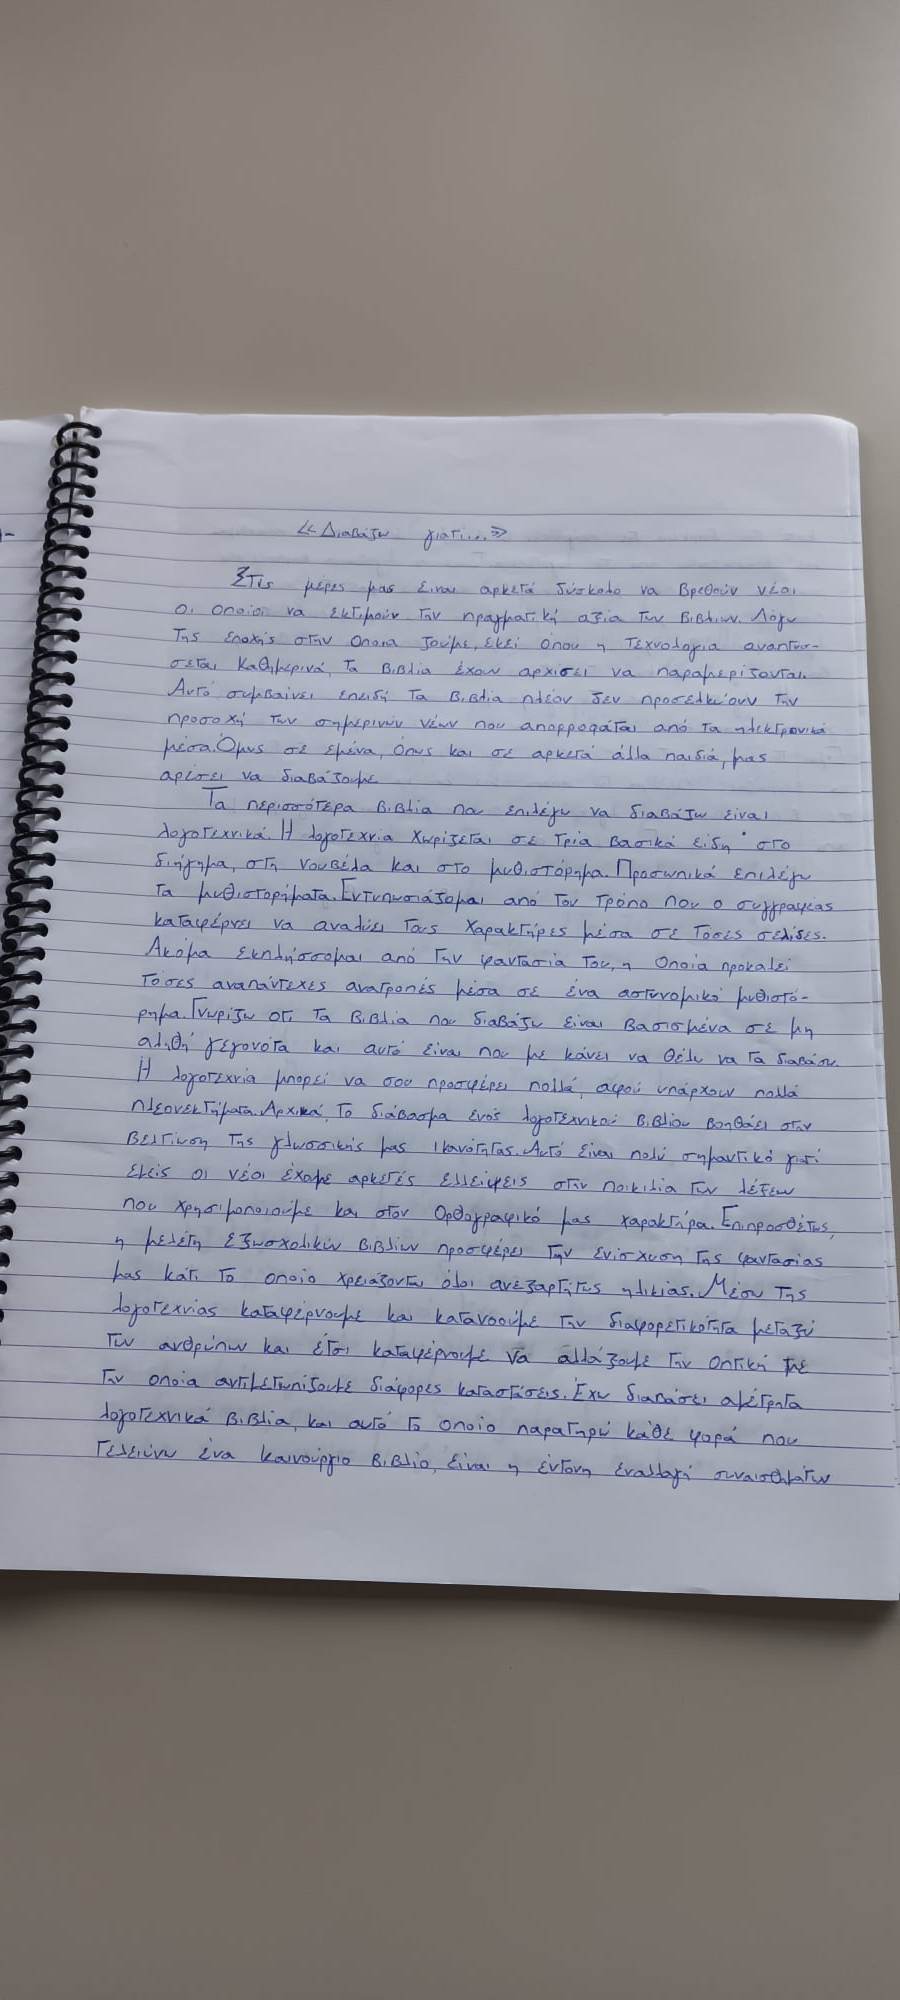 «Διαβάζω γιατί...»
Στις μέρες μας είναι αρκετά δύσκολο να βρεθούν νέοι
οι οποίοι να εκτιμούν την πραγματική αξία των βιβλίων. Λόγω
της εποχής στην οποία ζούμε, εκεί όπου η τεχνολογία αναπτύσ-
σεται καθημερινά, τα βιβλία έχουν αρχίσει να παραμερίζονται.
Αυτό συμβαίνει επειδή τα βιβλία πλέον δεν προσελκύουν την
προσοχή των σημερινών νέων που απορροφάται από τα ηλεκτρονικά
μέσα. Όμως σε εμένα, όπως και σε αρκετά άλλα παιδιά, μας
αρέσει να διαβάζουμε
Τα περισσότερα βιβλία που επιλέγω να διαβάζω είναι
λογοτεχνικά. Η λογοτεχνία χωρίζεται σε τρία βασικά είδη· στο
διήγημα, στη νουβέλα και στο μυθιστόρημα. Προσωπικά επιλέγω
τα μυθιστορήματα. Εντυπωσιάζομαι από τον τρόπο που ο συγγραφέας
καταφέρνει να αναλύει τους χαρακτήρες μέσα σε τόσες σελίδες.
Ακόμα εκπλήσσομαι από την φαντασία του, η οποία προκαλεί
τόσες αναπάντεχες ανατροπές μέσα σε ένα αστυνομικό μυθιστό-
ρημα. Γνωρίζω οτι τα βιβλία που διαβάζω είναι βασισμένα σε μη
αληθή γεγονότα και αυτό είναι που με κάνει να θέλω να τα διαβάσω.
Η λογοτεχνία μπορεί να σου προσφέρει πολλά, αφού υπάρχουν πολλά
πλεονεκτήματα. Αρχικά, το διάβασμα ενός λογοτεχνικού βιβλίου βοηθάει στην
βελτίωση της γλωσσικής μας ικανότητας. Αυτό είναι πολύ σημαντικό γιατί
εμείς οι νέοι έχουμε αρκετές ελλείψεις στην ποικιλία των λέξεων
που χρησιμοποιούμε και στον ορθογραφικό μας χαρακτήρα. Επιπροσθέτως,
η μελέτη εξωσχολικών βιβλίων προσφέρει την ενίσχυση της φαντασίας
μας κάτι το οποίο χρειάζονται όλοι ανεξαρτήτως ηλικίας. Μέσω της
λογοτεχνίας καταφέρνουμε και κατανοούμε την διαφορετικότητα μεταξύ
των ανθρώπων και έτσι καταφέρνουμε να αλλάζουμε την οπτική με
την οποία αντιμετωπίζουμε διάφορες καταστάσεις. Έχω διαβάσει αμέτρητα
λογοτεχνικά βιβλία, και αυτό το οποίο παρατηρώ κάθε φορά που
τελειώνω ένα καινούργιο βιβλίο, είναι η έντονη εναλλαγή συναισθημάτων